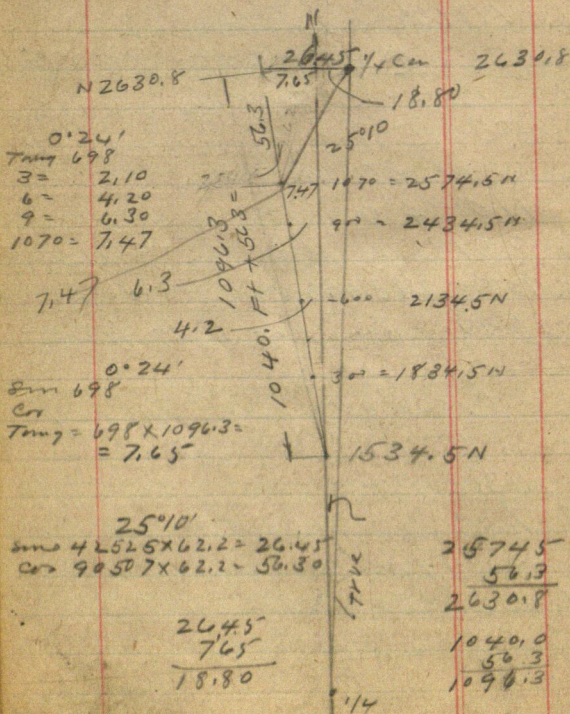 N
2645 1/4 Cen 2630.8
N 2630.8 7.65
18.80
56.3
25°10
0°24'
Tang 698
3 = 2.10
6 = 4.20
9 = 6.30
1070 = 7.47
7.47 1070 = 2574.5 N
900 = 2434.5 N
7.47
6.3
4.2
1096.3
1040. Ft + 56.3 =
-600 2134.5 N
300 = 1834.5 N
0°24'
Sin 698
Cos
Tang = 698 X 1096.3 =
= 7.65
1534.5 N
25°10'
Sine 42525 X 62.2 = 26.45
Cos 90507 X 62.2 = 56.30
True
2645
765
18.80
25745
56.3
2630.8
1040.0
56.3
1096.3
1/4